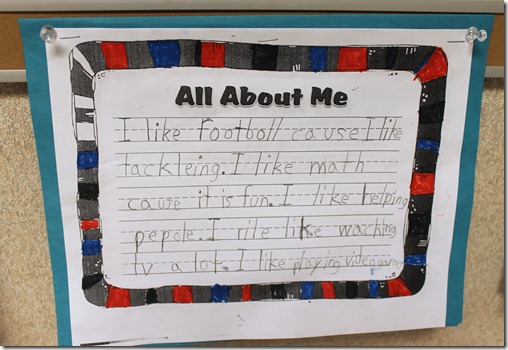 All About Me
I like football cause I like
tackleing. I like math
cause it is fun. I like helping
pepole. I rile like waching
tv a lot. I like playing videogames